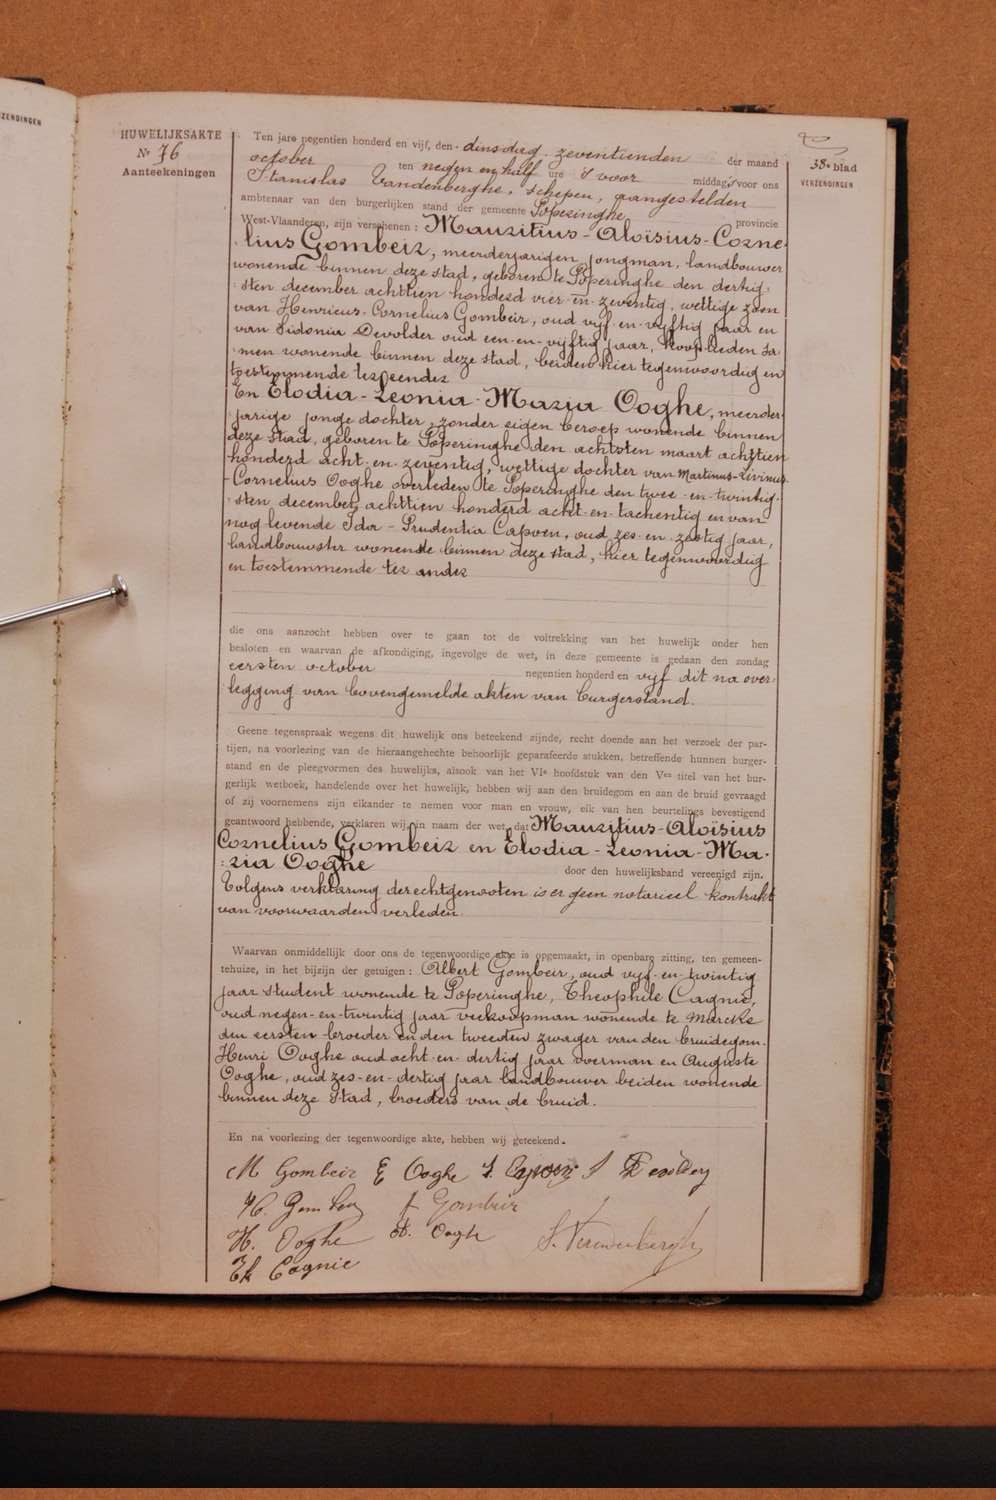 ZENDINGEN
HUWELIJKSAKTE
Nr 76
Aanteekeningen
38e blad
VERZENDINGEN
Ten jare negentien honderd en vijf, den dinsdag zeventienden der maand
october ten negen en half ure 's voor middag's voor ons
Stanislas Vandenberghe, schepen, aangestelden
ambtenaar van den burgerlijken stand der gemeente Poperinghe provincie
West-Vlaanderen, zijn verschenen : Mauritius-Aloïsius-Corne-
lius Gombeir, meerderjarigen jongman, landbouwer
wonende binnen deze stad, geboren te Poperinghe den dertig-
sten december achttien honderd vier-en-zeventig, wettige zoon
van Henricus-Cornelius Gombeir, oud vijf-en-vijftig jaar en
van Sidonia Devolder oud een-en-vijftig jaar, kooplieden sa-
men wonende binnen deze stad, beiden hier tegenwoordig en
toestemmende ter eender
En Elodia-Leonia-Maria Ooghe, meerder-
jarige jonge dochter, zonder eigen beroep wonende binnen
deze stad, geboren te Poperinghe den achtsten maart achttien
honderd acht-en-zeventig, wettige dochter van Martinus-Livinus-
-Cornelius Ooghe overleden te Poperinghe den twee-en-twintig-
sten december achttien honderd acht-en-tachentig en van
nog levende Ida-Prudentia Capoen, oud zes-en-zestig jaar,
landbouwster wonende binnen deze stad, hier tegenwoordig
en toestemmende ter ander
die ons aanzocht hebben over te gaan tot de voltrekking van het huwelijk onder hen
besloten en waarvan de afkondiging, ingevolge de wet, in deze gemeente is gedaan den zondag
eersten october negentien honderd en vijf dit na over-
legging van bovengemelde akten van burgerstand.
Geene tegenspraak wegens dit huwelijk ons beteekend zijnde, recht doende aan het verzoek der par-
tijen, na voorlezing van de hieraangehechte behoorlijk geparafeerde stukken, betreffende hunnen burger-
stand en de pleegvormen des huwelijks, alsook van het VIe hoofdstuk van den Ven titel van het bur-
gerlijk wetboek, handelende over het huwelijk, hebben wij aan den bruidegom en aan de bruid gevraagd
of zij voornemens zijn elkander te nemen voor man en vrouw, elk van hen beurtelings bevestigend
geantwoord hebbende, verklaren wij, in naam der wet, dat Mauritius-Aloïsius
Cornelius Gombeir en Elodia-Leonia-Ma-
ria Ooghe door den huwelijksband vereenigd zijn.
Volgens verklaring der echtgenooten is er geen notarieel kontrakt
van voorwaarden verleden.
Waarvan onmiddellijk door ons de tegenwoordige akte is opgemaakt, in openbare zitting, ten gemeen-
tehuize, in het bijzijn der getuigen : Albert Gombeir, oud vijf-en-twintig
jaar student wonende te Poperinghe, Theophile Cagnie,
oud negen-en-twintig jaar veekoopman wonende te Marcke
den eersten broeder en den tweeden zwager van den bruidegom.
Henri Ooghe oud acht-en-dertig jaar voerman en Auguste
Ooghe, oud zes-en-dertig jaar landbouwer beiden wonende
binnen deze stad, broeders van de bruid.
En na voorlezing der tegenwoordige akte, hebben wij geteekend.
M Gombeir E Ooghe I. Capoen S Devolder
H. Gombeir A Gombeir
H. Ooghe A. Ooghe
Th Cagnie